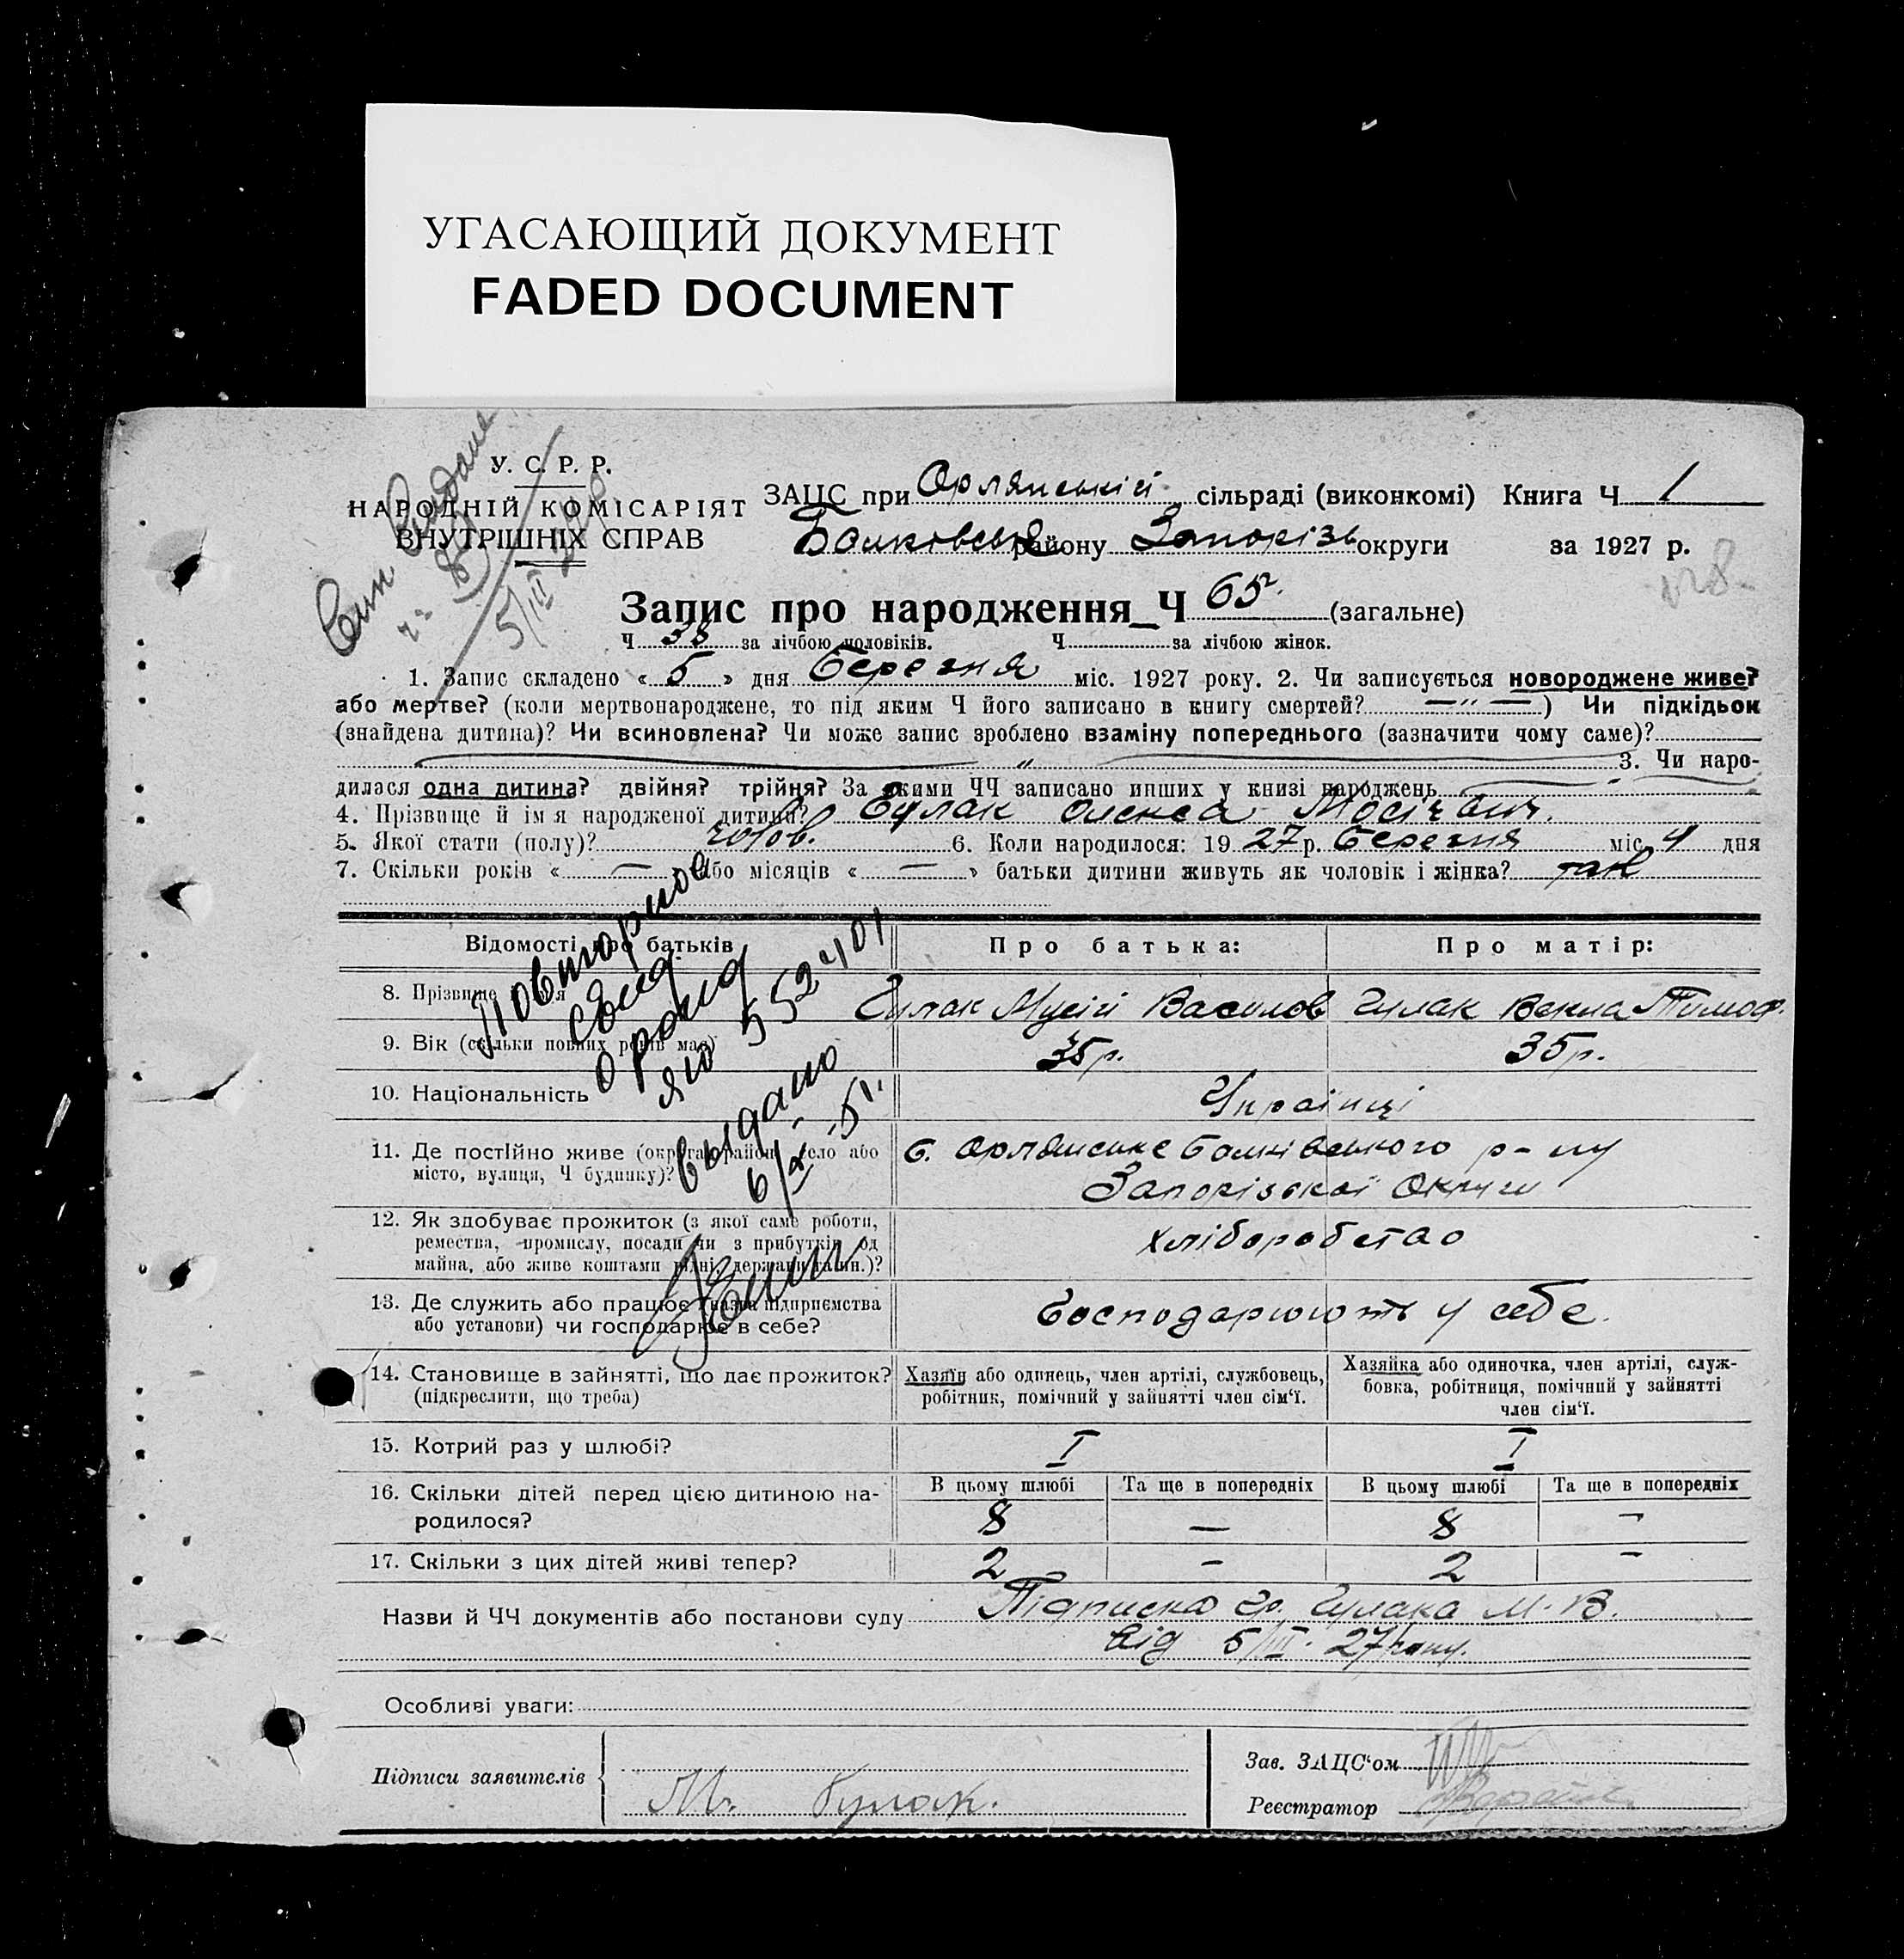 УГАСАЮЩИЙ ДОКУМЕНТ
FADED DOCUMENT
У. С. Р. Р.
НАРОДНІЙ КОМІСАРІЯТ
ВНУТРІШНІХ СПРАВ
ЗАЦС при Орлянській сільраді (виконкомі) Книга Ч 1
району Запорізь округи за 1927 р.
Запис про народження Ч 65 (загальне)
Ч 38 за лічбою чоловіків. Ч за лічбою жінок.
1. Запис складено « 5 » дня Березня міс. 1927 року. 2. Чи записується новороджене живе?
або мертве? (коли мертвонароджене, то під яким Ч його записано в книгу смертей? — " — ) Чи підкідьок
(знайдена дитина)? Чи всиновлена? Чи може запис зроблено взаміну попереднього (зазначити чому саме)?
" 3. Чи наро-
дилася одна дитина? двійня? трійня? За якими ЧЧ записано инших у книзі народжень
4. Прізвище й ім'я народженої дитини? Гулак Олекса
5. Якої стати (полу)? чолов. 6. Коли народилося: 19 27 р. Березня міс. 4 дня
7. Скільки років « — » або місяців « — » батьки дитини живуть як чоловік і жінка? так
Повторное
свид
о рожд
яю 552401
выдано
6/X-51.
Відомості про батьків
Про батька:
Про матір:
8. Прізвище й ім'я Гулак Мусій Василов Гулак Векла Тимоф.
9. Вік (скільки повних років має) 35 р. 35 р.
10. Національність Українці
11. Де постійно живе (округа, район, село або с. Орлянське р-ну
місто, вулиця, Ч будинку)? Запорізської Округи
12. Як здобуває прожиток (з якої саме роботи, хліборобство
ремества, промислу, посади чи з прибутків од
майна, або живе коштами рідні, держави та ин.)?
13. Де служить або працює (назва підприємства Господарюють у себе.
або установи) чи господарює в себе?
14. Становище в зайнятті, що дає прожиток?
(підкреслити, що треба)
Хазяїн або одинець, член артілі, службовець,
робітник, помічний у зайнятті член сім'ї.
Хазяйка або одиночка, член артілі, служ-
бовка, робітниця, помічний у зайнятті
член сім'ї.
15. Котрий раз у шлюбі? I I
В цьому шлюбі Та ще в попередніх В цьому шлюбі Та ще в попередніх
16. Скільки дітей перед цією дитиною на- 8 — 8 —
родилося?
17. Скільки з цих дітей живі тепер? 2 — 2 —
Назви й ЧЧ документів або постанови суду Підписка гр. Гулака М. В.
від 5/III 27 року.
Особливі уваги:
Підписи заявителів
М. Гулак.
Зав. ЗАЦС'ом
Реєстратор